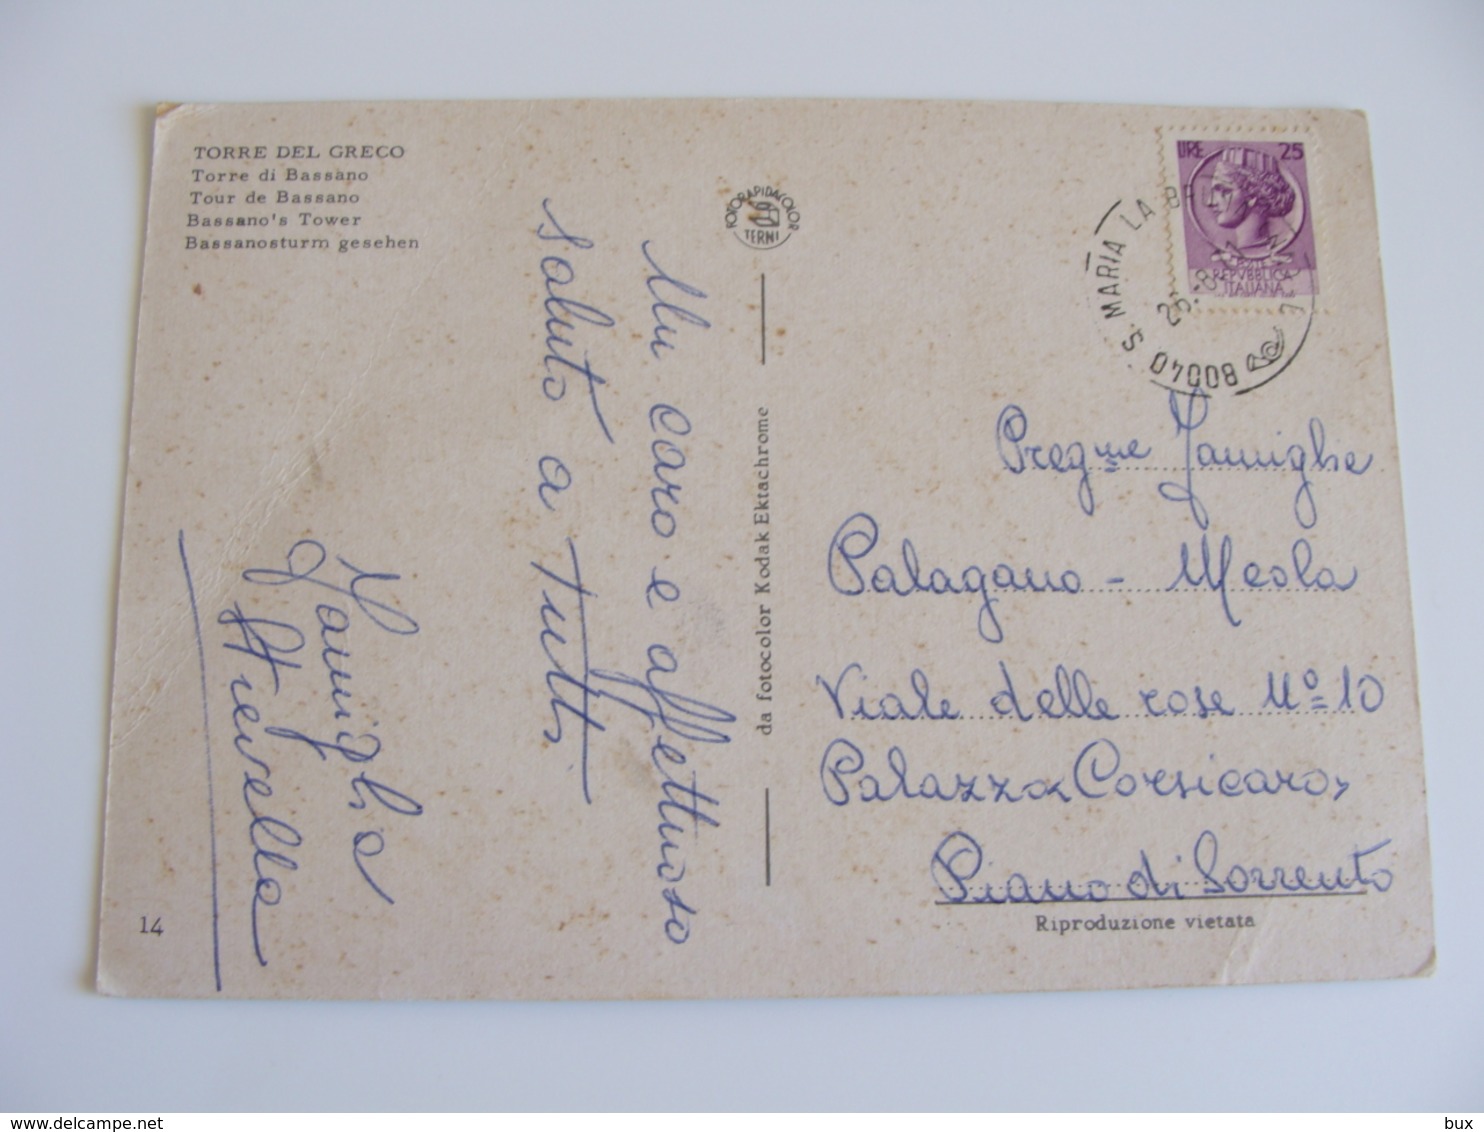 TORRE DEL GRECO
Torre di Bassano
Tour de Bassano
Bassano's Tower
Bassanosturm gesehen
FOTORAPIDACOLOR
TERNI
LIRE 25
REPVBBLICA
ITALIANA
80040 S. MARIA LA BRUNA
Un caro e affettuoso
saluto a tutti
Famiglia
da fotocolor Kodak Ektachrome
Preg.me Famiglie
Palagano - Meola
Viale delle rose N° 10
Palazzo Corsicaro,
Piano di Sorrento
14
Riproduzione vietata
www.delcampe.net
bux